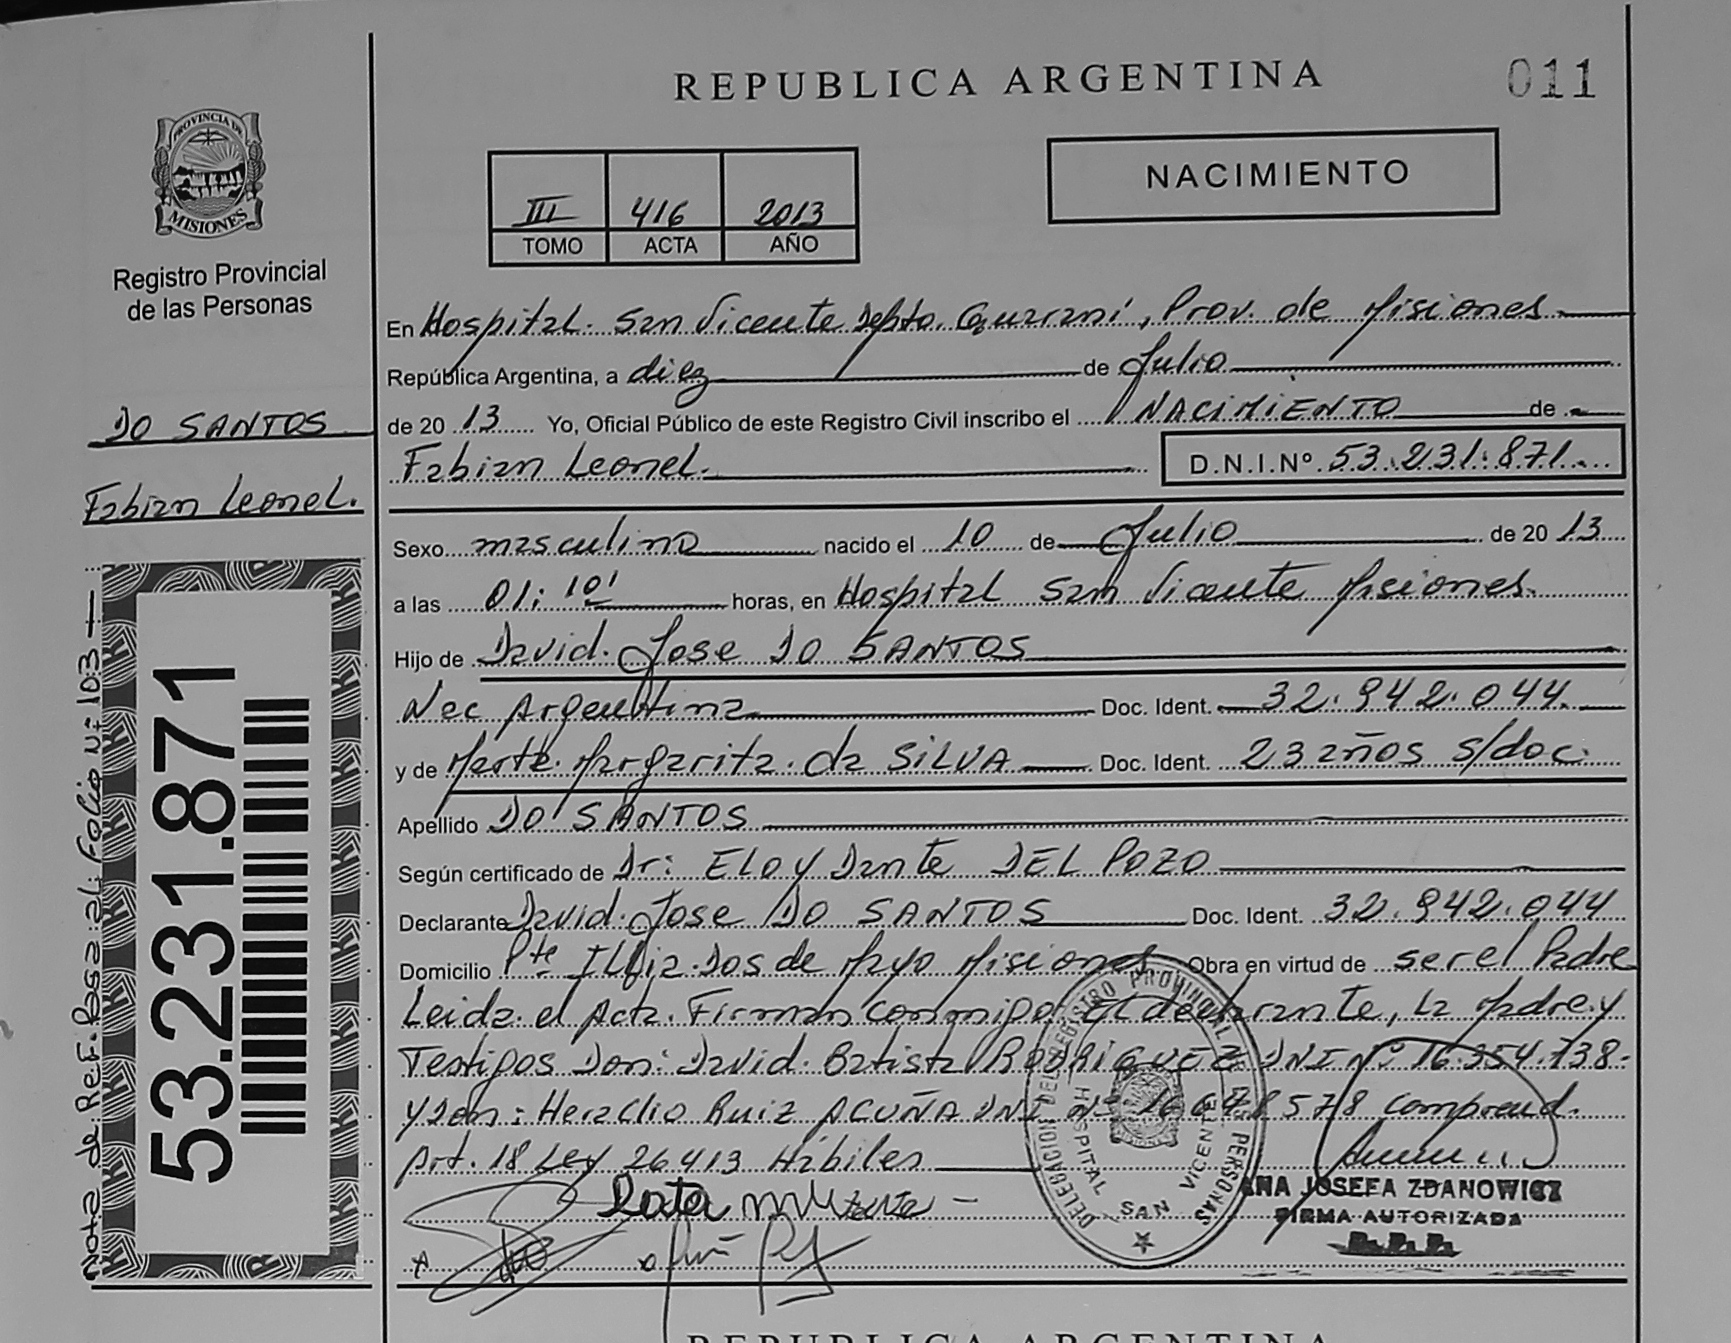 REPUBLICA ARGENTINA
011
PROVINCIA DE
MISIONES
Registro Provincial
de las Personas
III 416 2013
TOMO ACTA AÑO
NACIMIENTO
DO SANTOS
Fabian Leonel.
Nota de Ref. Pasa al Folio Nº 103
53.231.871
En Hospital San Vicente Depto. Guaraní, Prov. de Misiones
República Argentina, a diez de Julio
de 20 13 Yo, Oficial Público de este Registro Civil inscribo el NACIMIENTO de
Fabian Leonel. D.N.I.Nº. 53.231.871
Sexo masculino nacido el 10 de Julio de 20 13
a las 01:10' horas, en Hospital San Vicente Misiones.
Hijo de David Jose DO SANTOS
Nac Argentina Doc. Ident. 32.942.044.
y de Marta Margarita da SILVA Doc. Ident. 23 años s/doc.
Apellido DO SANTOS
Según certificado de Dr: ELOY Dante DEL POZO
Declarante David Jose DO SANTOS Doc. Ident. 32.942.044
Domicilio Pte ILLia Dos de Mayo Misiones Obra en virtud de ser el Padre
Leida el Acta. Firman conmigo el declarante, la Madre y
Testigos Don: David Batista RODRIGUEZ DNI Nº 16.354.738.
y Don: Heraclio Ruiz ACUÑA DNI Nº 578 Comprend.
Art. 18 Ley 26413 Hábiles
DELEGACION DEL REGISTRO PROVINCIAL DE LAS PERSONAS
HOSPITAL SAN VICENTE
ANA JOSEFA ZDANOWICZ
FIRMA AUTORIZADA
REPUBLICA ARGENTINA